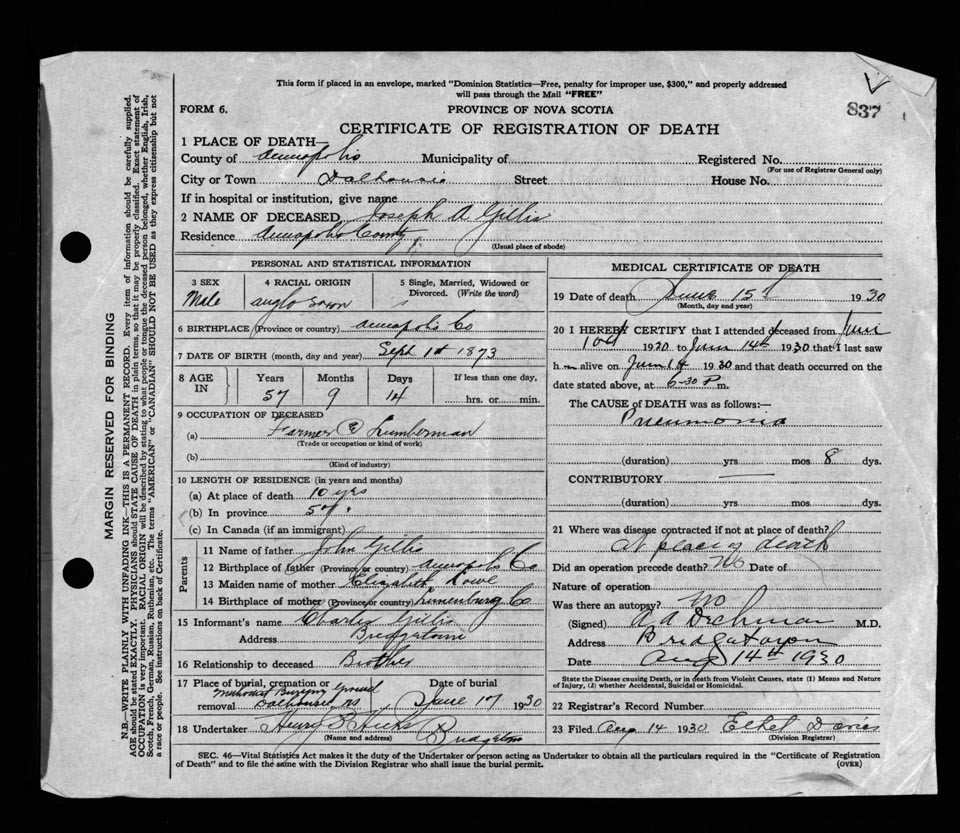 This form if placed in an envelope, marked "Dominion Statistics—Free, penalty for improper use, $300," and properly addressed
will pass through the Mail "FREE"
837
FORM 6.
PROVINCE OF NOVA SCOTIA
CERTIFICATE OF REGISTRATION OF DEATH
1 PLACE OF DEATH—
County of Annapolis Municipality of Registered No.
(For use of Registrar General only)
City or Town Dalhousie Street House No.
If in hospital or institution, give name
2 NAME OF DECEASED Joseph A Gillis
Residence Annapolis County
(Usual place of abode)
PERSONAL AND STATISTICAL INFORMATION
3 SEX
Male
4 RACIAL ORIGIN
anglo saxon
5 Single, Married, Widowed or
Divorced. (Write the word)
s
6 BIRTHPLACE (Province or country) Annapolis Co
7 DATE OF BIRTH (month, day and year) Sept 1st 1873
8 AGE IN
Years Months Days If less than one day,
57 9 14 hrs. or min.
9 OCCUPATION OF DECEASED
(a) Farmer & Lumberman
(Trade or occupation or kind of work)
(b)
(Kind of industry)
10 LENGTH OF RESIDENCE (in years and months)
(a) At place of death 10 yrs
(b) In province 57 "
(c) In Canada (if an immigrant)
Parents
11 Name of father John Gillis
12 Birthplace of father (Province or country) Annapolis Co
13 Maiden name of mother Elizabeth
14 Birthplace of mother (Province or country) Lunenburg Co
15 Informant's name Charlie Gillis
Address Bridgetown
16 Relationship to deceased Brother
17 Place of burial, cremation or removal Date of burial
Methodist Burying Ground
Dalhousie, NS June 17 1930
18 Undertaker Henry B Hicks
(Name and address) Bridgetown
MEDICAL CERTIFICATE OF DEATH
19 Date of death June 15th 1930
(Month, day and year)
20 I HEREBY CERTIFY that I attended deceased from June
10th 1930 to June 14th 1930 that I last saw
him alive on June 14 1930 and that death occurred on the
date stated above, at 6-30 P m.
The CAUSE of DEATH was as follows:—
Pneumonia
(duration) yrs mos 8 dys.
CONTRIBUTORY —
(duration) yrs mos dys.
21 Where was disease contracted if not at place of death?
at place of death
Did an operation precede death? No Date of
Nature of operation
Was there an autopsy? no
(Signed) A A Dechman M.D.
Address Bridgetown
Date Aug 14th 1930
State the Disease causing Death, or in death from Violent Causes, state (1) Means and Nature
of Injury, (2) whether Accidental, Suicidal or Homicidal.
22 Registrar's Record Number
23 Filed Aug 14 1930 Ethel
(Division Registrar)
SEC. 46—Vital Statistics Act makes it the duty of the Undertaker or person acting as Undertaker to obtain all the particulars required in the "Certificate of Registration
of Death" and to file the same with the Division Registrar who shall issue the burial permit.
(OVER)
MARGIN RESERVED FOR BINDING
N.B.—WRITE PLAINLY WITH UNFADING INK—THIS IS A PERMANENT RECORD. Every item of information should be carefully supplied.
AGE should be stated EXACTLY. PHYSICIANS should STATE CAUSE OF DEATH in plain terms, so that it may be properly classified. Exact statement of
OCCUPATION is very important. RACIAL ORIGIN will be described by stating to what people or tongue the deceased person belonged, whether English, Irish,
Scotch, French, German, Russian, Ruthenian, etc. The terms "AMERICAN" or "CANADIAN" SHOULD NOT BE USED as they express citizenship but not
a race or people. See instructions on back of Certificate.